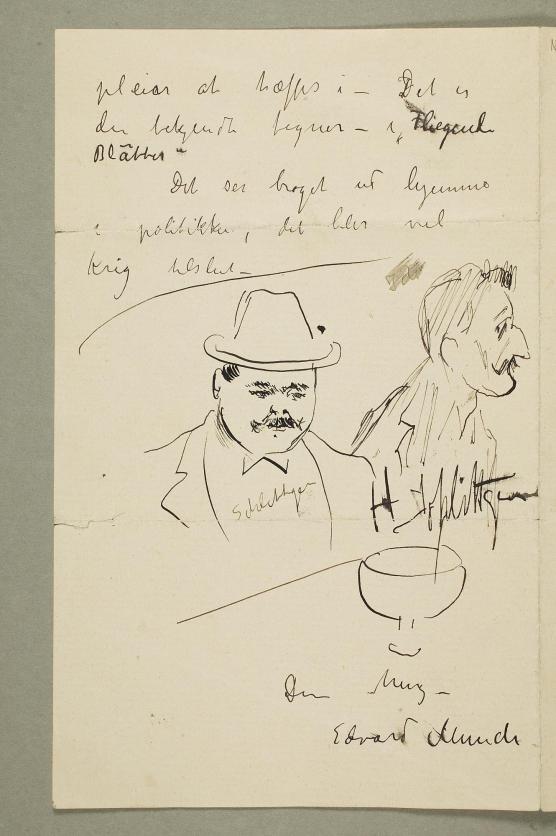 pleier at træffes i – Det er
den bekjendte tegner – i „Fliegende
Blätter“
Det ser broget ud hjemme
i politikken, det blir vel
Krig tilslut –
Schlittgen
H Schlittgen
Din
Edvard Munch